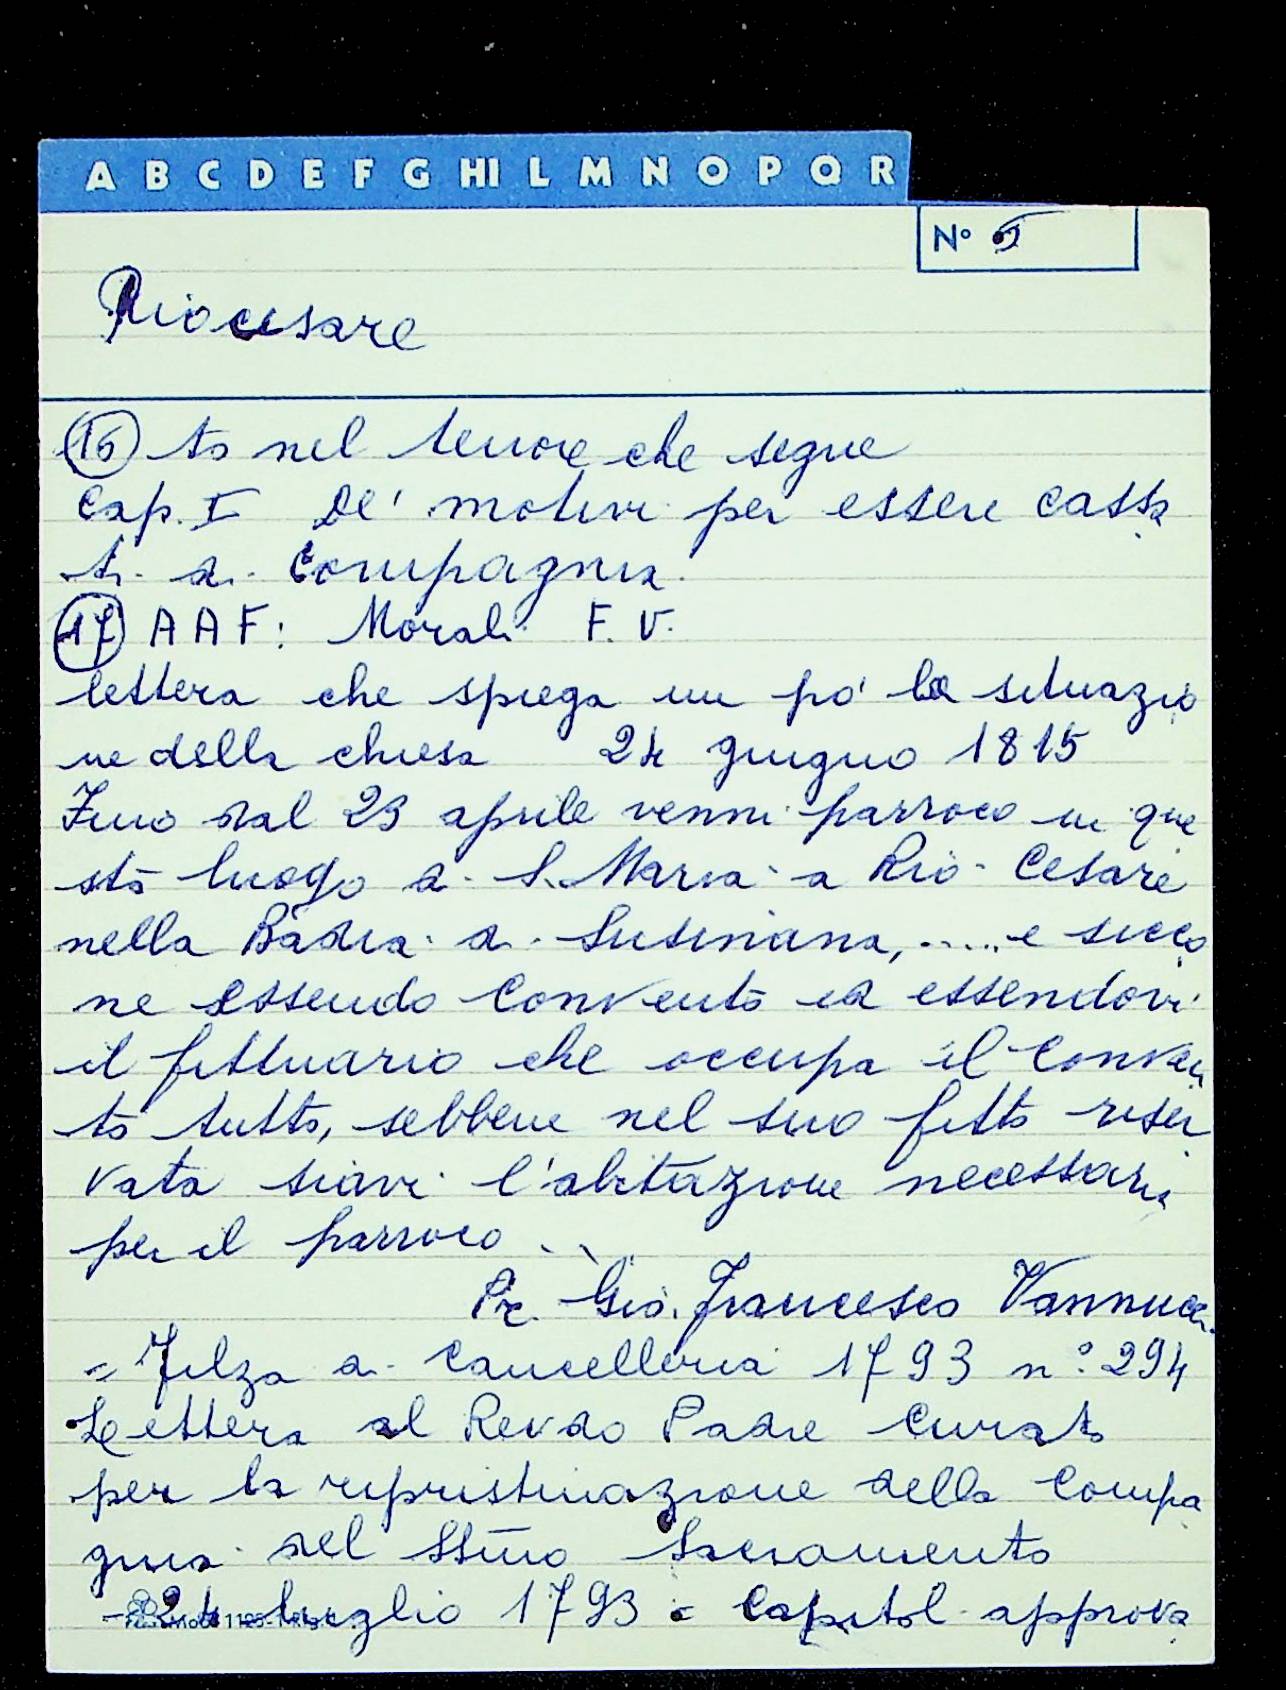 A B C D E F G HI L M N O P Q R
N° 5
Riocesare
16 to nel tenore che segue
Cap. I De' motivi per essere cassa
ti di Compagnia.
17 A A F: Morali F. V.
lettera che spiega un po' la situazio
ne della chiesa 24 giugno 1815
Fino dal 23 aprile venni parroco in que
sto luogo di S. Maria a Rio Cesare
nella Badia di Susinana, ..... e sicco
me essendo Convento ed essendovi
il fittuario che occupa il Conven
to tutto, sebbene nel suo fitto riser
vata siavi l'abitazione necessaria
per il parroco ...
Pr. Gio. Francesco Vannucci.
= Filza di Cancelleria 1793 n° 294
Lettera al Revdo Padre Curato
per la ripristinazione della Compa
gnia del SSmo Sacramento
24 luglio 1793 = Capitoli approva